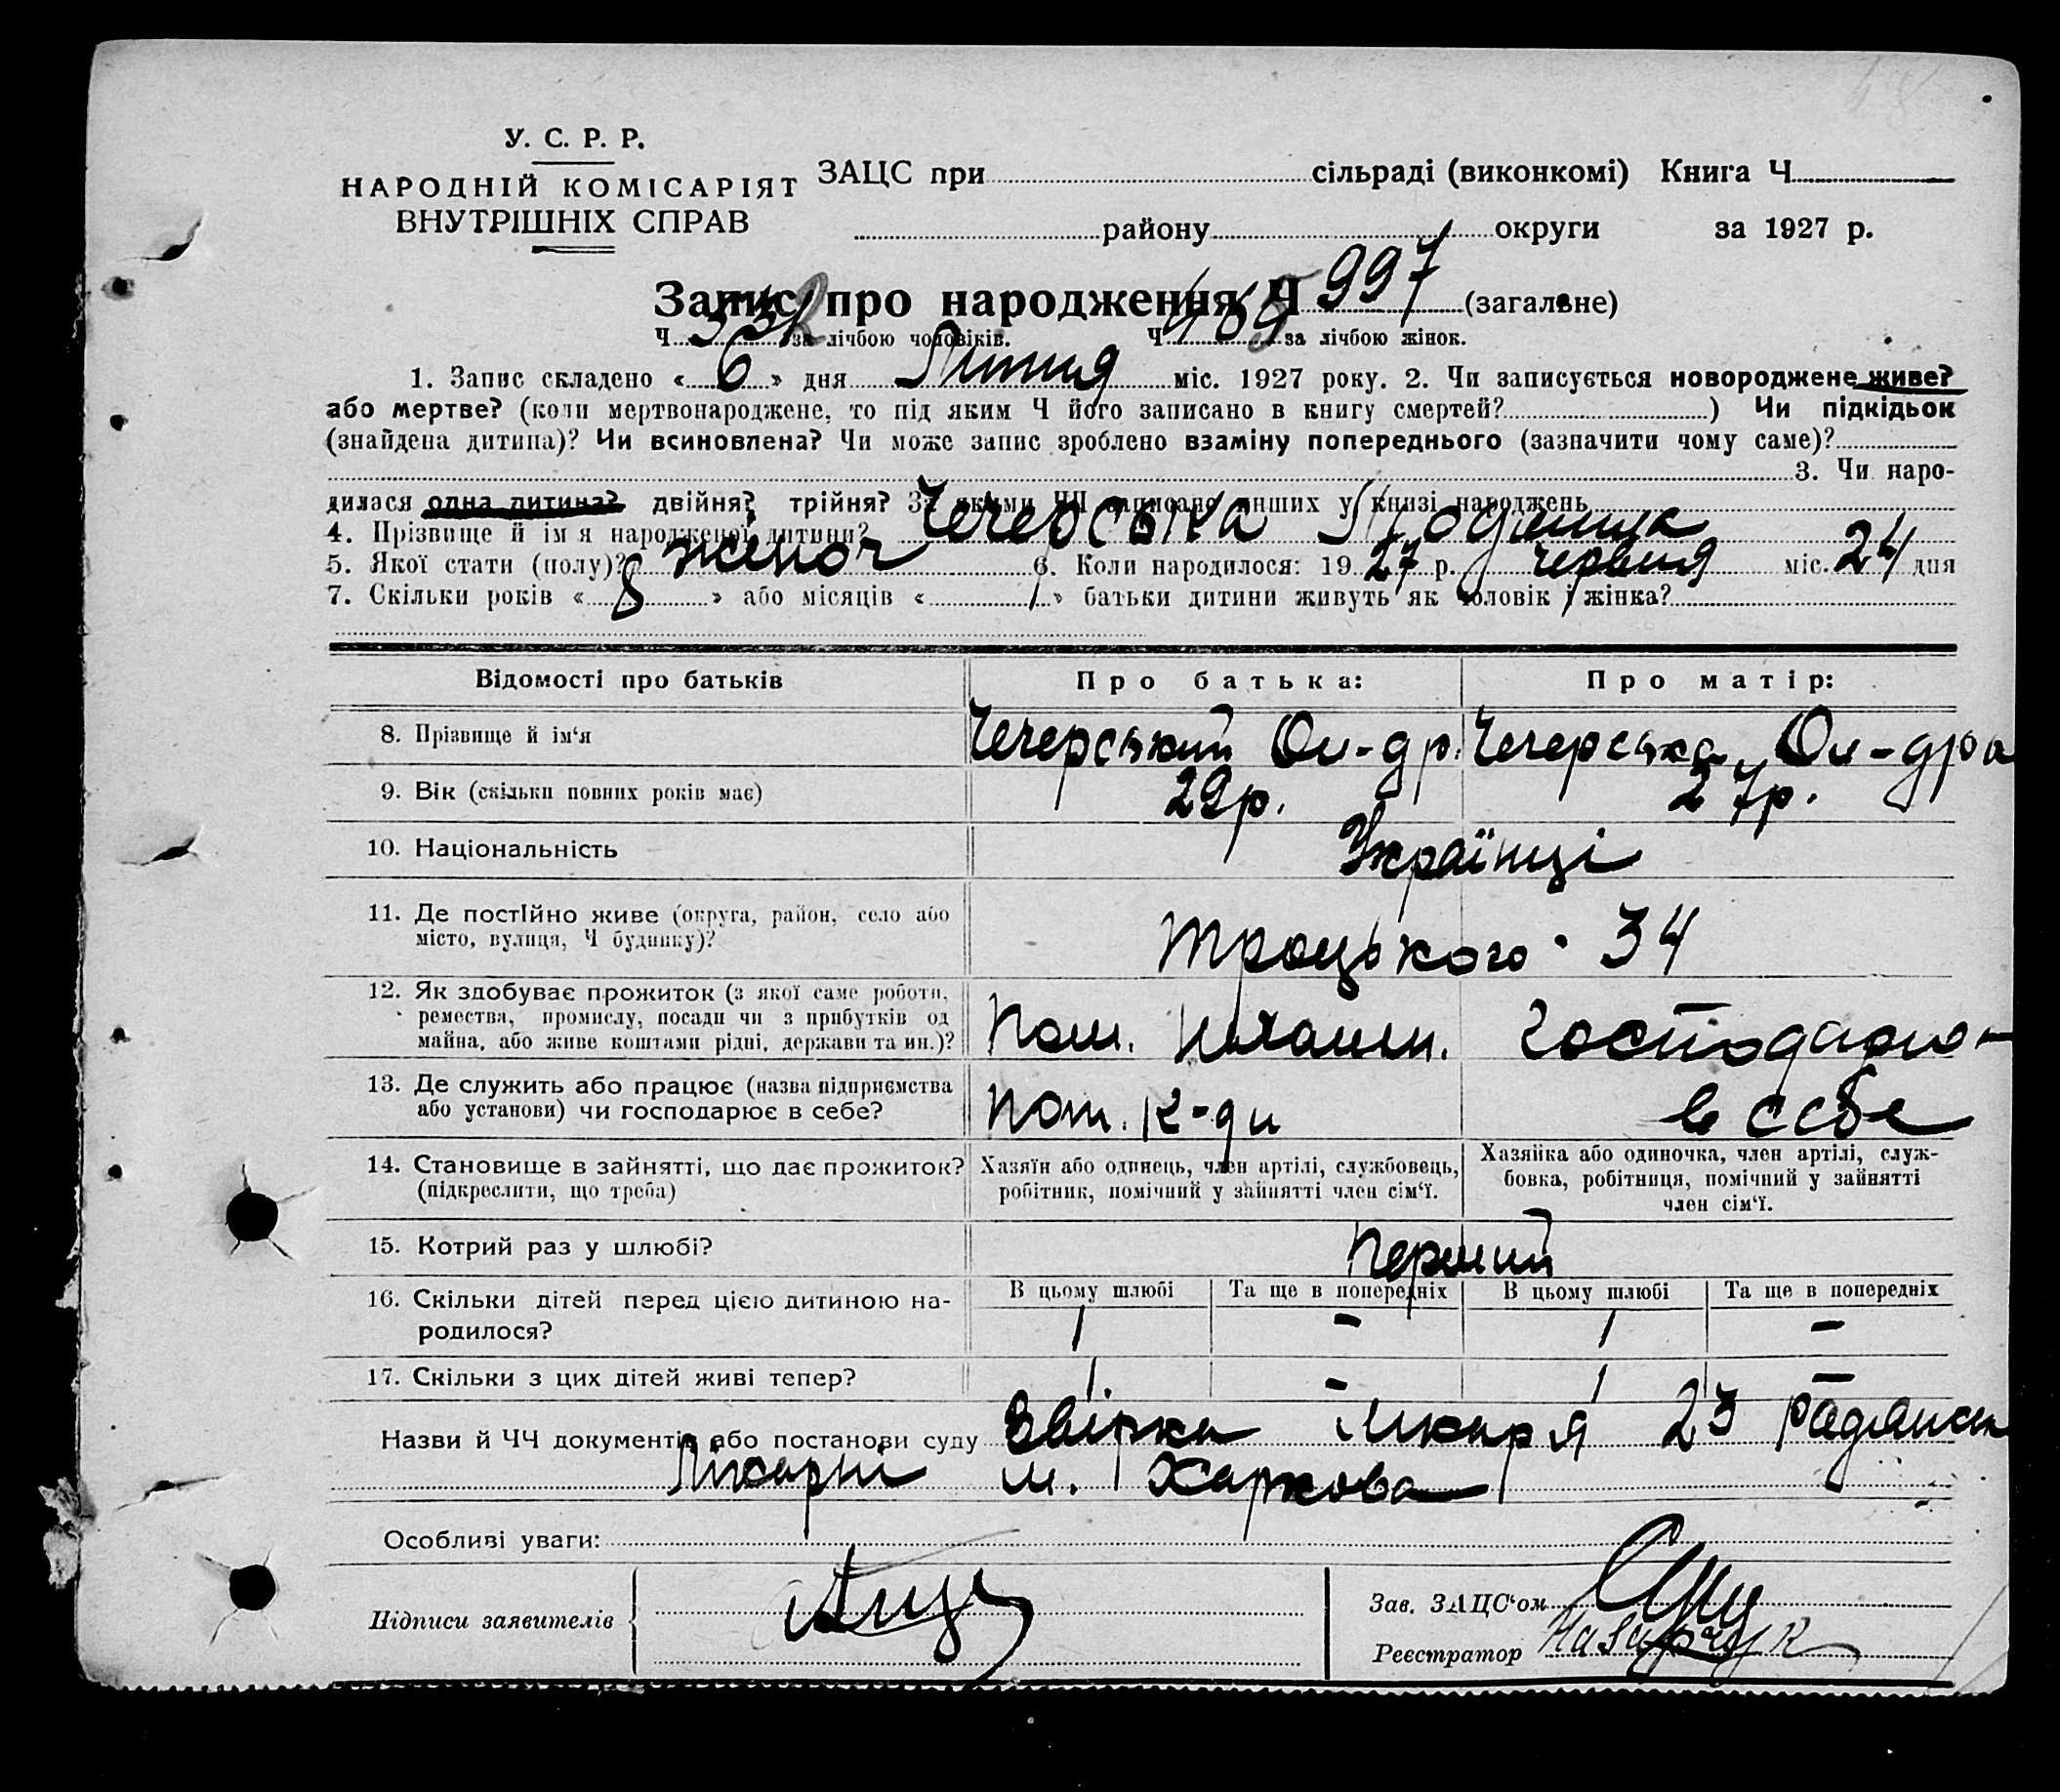 У. С. Р. Р.
НАРОДНІЙ КОМІСАРІЯТ
ВНУТРІШНІХ СПРАВ
ЗАЦС при сільраді (виконкомі) Книга Ч
району округи за 1927 р.
Запис про народження Ч 997 (загальне)
Ч. за лічбою чоловіків. Ч. за лічбою жінок.
1. Запис складено « 6 » дня Липня міс. 1927 року. 2. Чи записується новороджене живе?
або мертве? (коли мертвонароджене, то під яким Ч його записано в книгу смертей? ) Чи підкідьок
(знайдена дитина)? Чи всиновлена? Чи може запис зроблено взаміну попереднього (зазначити чому саме)?
3. Чи наро-
дилася одна дитина? двійня? трійня? За якими ЧЧ записано інших у книзі народжень
4. Прізвище й ім'я народженої дитини? Чечерська
5. Якої стати (полу)? жіноч 6. Коли народилося: 19 27 р. червня міс. 24 дня
7. Скільки років « 8 » або місяців « » батьки дитини живуть як чоловік і жінка?
Відомості про батьків Про батька: Про матір:
8. Прізвище й ім'я Чечерський Ол-др. Чечерська Ол-дра
9. Вік (скільки повних років має) 29р. 27р.
10. Національність Українці
11. Де постійно живе (округа, район, село або
місто, вулиця, Ч будинку)? Троцького 34
12. Як здобуває прожиток (з якої саме роботи,
ремества, промислу, посади чи з прибутків од
майна, або живе коштами рідні, держави та ин.)? Пом. господарю-
13. Де служить або працює (назва підприємства
або установи) чи господарює в себе? к-ди в себе
14. Становище в зайнятті, що дає прожиток?
(підкреслити, що треба)
Хазяїн або одинець, член артілі, службовець,
робітник, помічний у зайнятті член сім'ї.
Хазяйка або одиночка, член артілі, служ-
бовка, робітниця, помічний у зайнятті
член сім'ї.
15. Котрий раз у шлюбі? Перший
16. Скільки дітей перед цією дитиною на-
родилося?
В цьому шлюбі Та ще в попередніх В цьому шлюбі Та ще в попередніх
1 - 1 -
17. Скільки з цих дітей живі тепер? 1 - 1 -
Назви й ЧЧ документів або постанови суду Звірка лікаря 23 радянськ
лікарні м. Харкова
Особливі уваги:
Підписи заявителів
Зав. ЗАЦС'ом
Реєстратор Назарчук